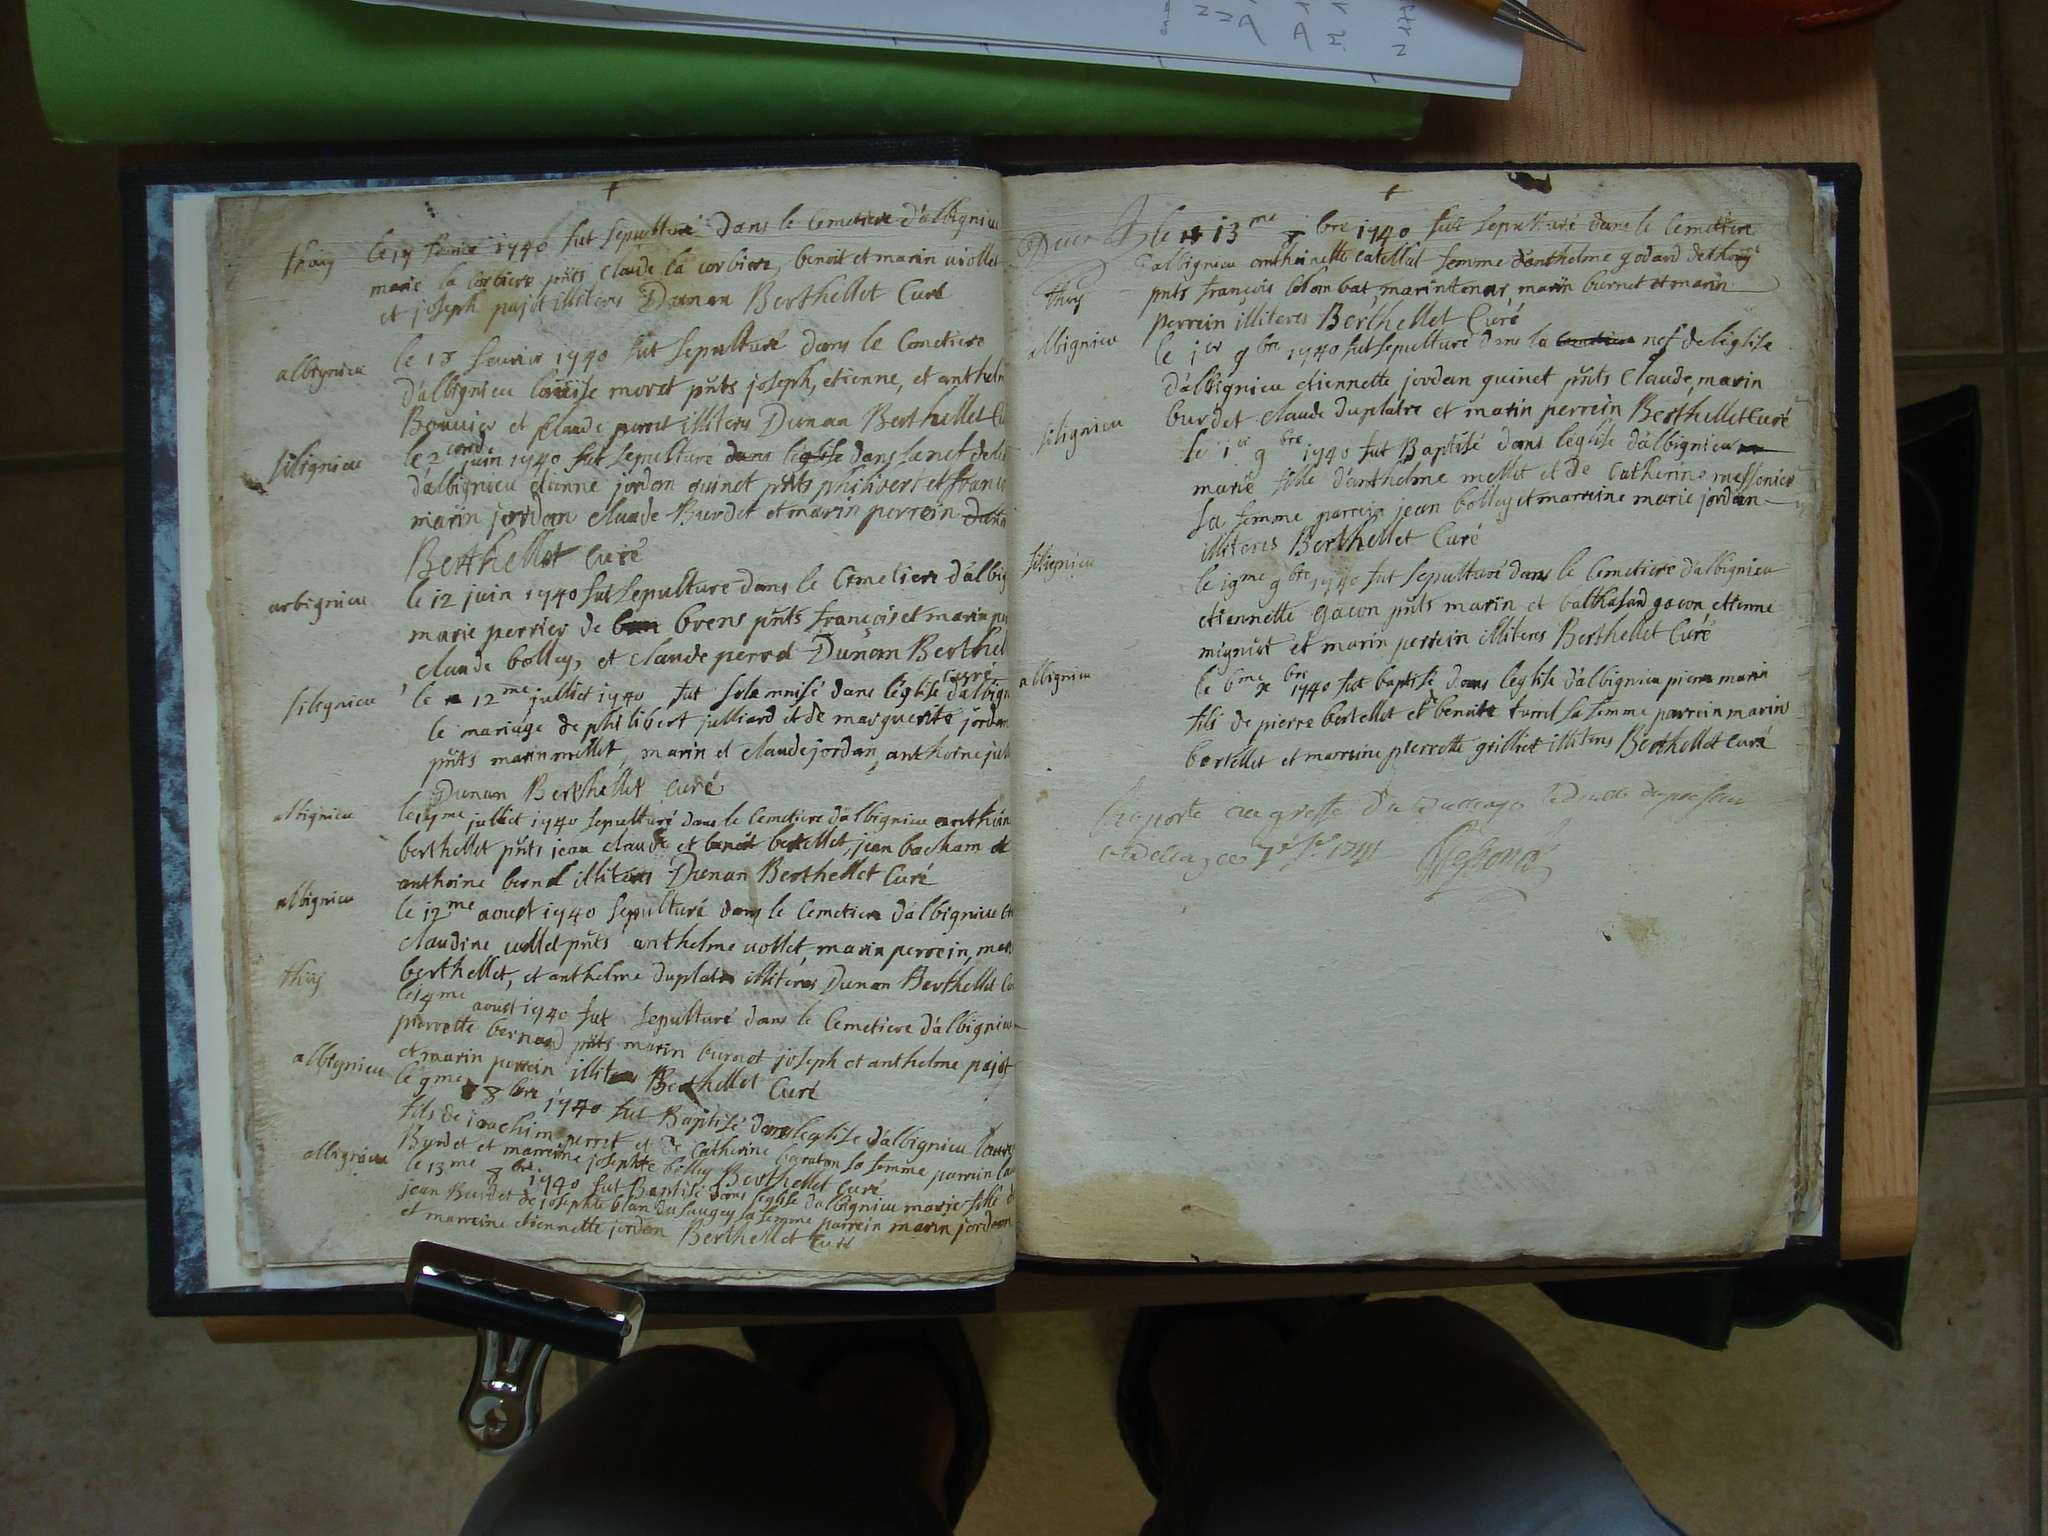 thoiy
le 17 fevrier 1740 fut sepulturé dans le cemetiere d'albignieu
marie la corbiere pñts claude la corbiere, benoit et marin viollet
et joseph pajot illiteres Dunan Berthellet Curé
albignieu
le 18 fevrier 1740 fut sepulturé dans le cemetiere
d'albignieu louise moret pñts joseph, etienne, et anthelm
Bouvier et claude perret illiteres Dunan Berthellet Cu
silignieu
le 2cond juin 1740 fut sepulturé dans l'eglise dans la nef de le
d'albignieu etienne jordan guinet pñts philivert et franc
marin jordan claude Burdet et marin perrein
Berthellet Curé
arbignieu
le 12 juin 1740 fut sepulture dans le cemetiere d'albig
marie perrier de brens pñts françois et marin pe
claude bolley, et claude perret Dunan Berthel
curé
silignieu
le 12me julliet 1740 fut solemnisé dans l'église d'albign
le mariage de philibert julliard et de marguerite jordan
pñts marin mellet, marin et claude jordan, anthoine jul
Dunan Berthellet Curé
albignieu
le 14me julliet 1740 sepulturé dans le cemetiere d'albignieu anthoin
berthellet pñts jean claude et benoit bertellet, jean bacham et
anthoine bernd illiteres Dunan Berthellet Curé
albignieu
le 12me aoust 1740 sepulturé dans le Cemetiere d'albignieu
claudine vollet pñts anthelme vollet, marin perrein, mar
berthellet, et anthelme duplatre illitéres Dunan Berthellet Cu
thoiy
le 14me aoust 1740 fut sepulturé dans le Cemetiere d'albignieu
pierrette bernard pñts marin burnet joseph et anthelme pajot
et marin perrein illiteres Berthellet Curé
albignieu
le 9me 8bre 1740 fut Baptisé dans leglise d'albignieu
fils de joachim perret et de Catherine baraton sa femme parrein
Burdet et marreine josephte bolley Berthellet Curé
albignieu
le 13me 8bre 1740 fut Baptisé dans leglise d'albignieu marie fille de
jean Burdet et de josephte blan du saugey sa femme parrein marin jordan
et marreine etiennette jordan Berthellet Curé
le 13me bre 1740 fut sepulturé dans le Cemetiere
d'albignieu anthoinette catellat femme d'anthelme godard de thoiy
thoiy
pnts françois colombat, marin tenar, marin burnet et marin
perrein illiteres Berthellet Curé
albignieu
le 1er 9bre 1740 fut sepulturé dans la cemetiere nef de l'église
d'albignieu etiennette jordan guinet pñts Claude, marin
burdet claude duplatre et marin perrein Berthellet Curé
silignieu
le 1er 9bre 1740 fut Baptisé dans leglise d'albignieu
marie fille d'anthelme mellet et de catherine messonier
sa femme parrein jean bolley et marreine marie jordan
illiteres Berthellet Curé
silignieu
le 19me 9bre 1740 fut sepulturé dans le Cemetiere d'albignieu
etiennette gacon pñts marin et balthasard gacon etienne
migniot et marin perrein illiteres Berthellet Curé
albignieu
le 6me xbre 1740 fut baptisé dans leglise d'albignieu pierre marin
fils de pierre bertellet et de benoite turrel sa femme parrein marin
bertellet et marreine pierrette grilliet illiteres Berthellet Curé